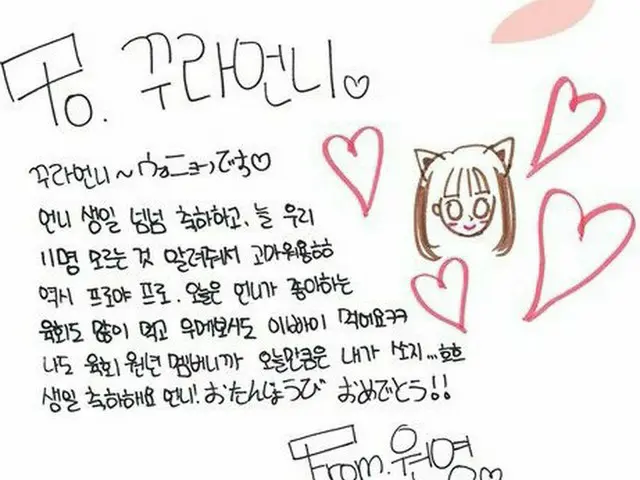 To. 꾸라언니♡
꾸라언니~ウォニョンです♡
언니 생일 넘넘 축하하고, 늘 우리
11명 모르는 것 알려줘서 고마워용ㅎㅎ
역시 프로야 프로. 오늘은 언니가 좋아하는
육회도 많이 먹고 우메보시도 이빠이 먹어요ㅋㅋ
나도 육회 원년 멤버니까 오늘만큼은 내가 쏘지...흐흐
생일 축하해요 언니! おたんほうび おめでとう!!
From. 원영♡